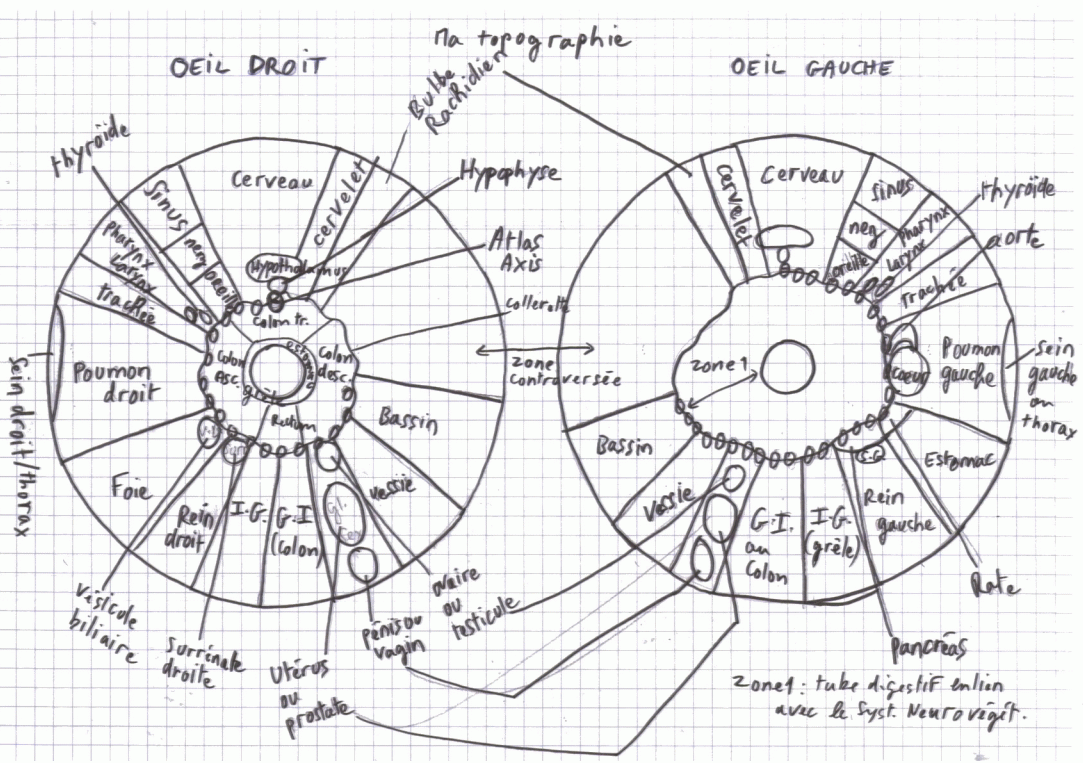 Ma topographie
OEIL DROIT
OEIL GAUCHE
Bulbe
Rachidien
thyroïde
Hypophyse
Atlas
Axis
collerette
Zone
controversée
Cerveau
cervelet
Sinus
nez
oreille
pharynx
Larynx
trachée
Hypothalamus
colon tr.
Colon
Asc.
Colon
desc.
estomac
grêle
Rectum
Poumon
droit
Sein droit/thorax
Foie
Rein
droit
I.G.
G.I
(colon)
Bassin
Vessie
Vésicule
biliaire
Surrénale
droite
Utérus
ou
prostate
pénis ou
vagin
ovaire
ou
testicule
cervelet
Cerveau
sinus
nez
oreille
pharynx
Larynx
trachée
thyroïde
aorte
zone 1
coeur
Poumon
gauche
sein
gauche
ou
thorax
Estomac
Rate
Rein
gauche
Pancréas
I.G.
(grêle)
G.I.
au
Colon
Vessie
Bassin
Zone 1 : tube digestif en lien
avec le Syst. Neurovégét.